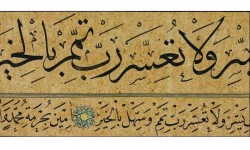 يسر ولا تعسر رب تمم بالخير
يسر ولا تعسر رب تمم وسهل بالخير